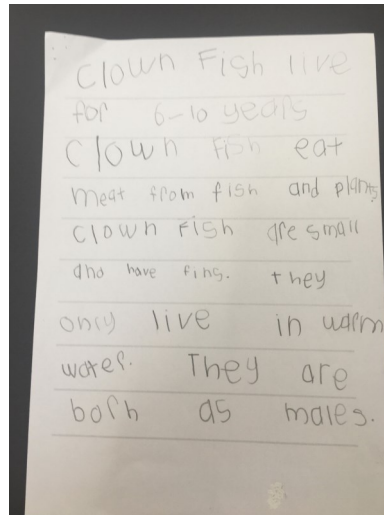 Clown Fish live
for 6-10 years
Clown Fish eat
meat from fish and plants
Clown Fish are small
and have fins. they
only live in warm
water. They are
born as males.